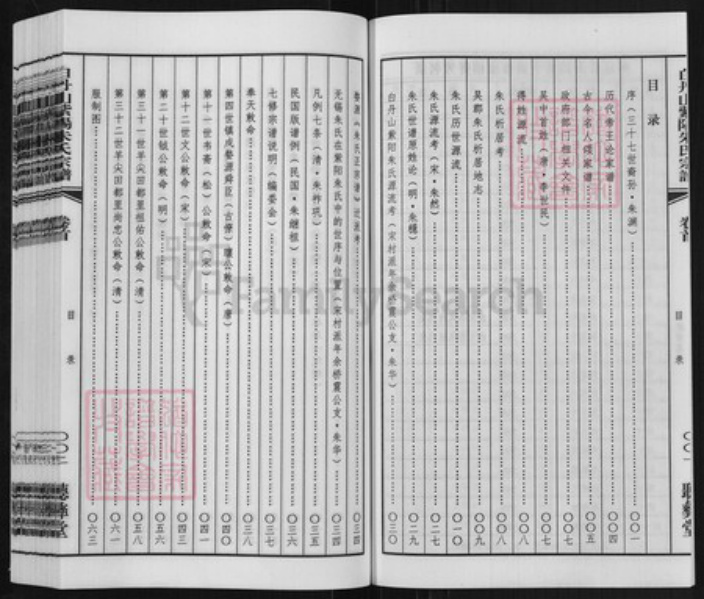 白丹山紫阳朱氏宗谱
卷首
目录
〇〇一
聽彝堂
目录
序（三十七世裔孙·朱渊）〇〇一
历代帝王论家谱〇〇四
古今名人颂家谱〇〇五
政府部门相关文件〇〇七
吴中首姓（唐·李世民）〇〇七
得姓源流〇〇八
朱氏析居考〇〇八
吴郡朱氏析居地志〇〇九
朱氏历世源流〇一〇
朱氏源流考（宋·朱然）〇二八
朱氏世谱原姓论（明·朱穗）〇二九
白丹山紫阳朱氏源流考（宋村派年余桥震公支·朱华）〇三〇
婺源《朱氏正宗谱》过流考〇三四
无锡朱氏在紫阳朱氏中的世序与位置（宋村派年余桥震公支·朱华）〇三四
凡例七条（清·朱柞巩）〇三五
民国版谱例（民国·朱继祖）〇三六
七修宗谱说明（编委会）〇三七
奉天敕命〇三八
第四世镇戍婺源舜臣（古僚）瓌公敕命（唐）〇四〇
第十一世韦斋（松）公敕命（宋）〇四一
第十二世文公敕命（宋）〇四三
第二十世钺公敕命（明）〇五六
第三十一世羊尖田都里祖佑公敕命（清）〇五八
第三十二世羊尖田都里尚忠公敕命（清）〇六一
服制图〇六三
白丹山紫阳朱氏宗谱
卷首
目录
聽彝堂
FamilySearch